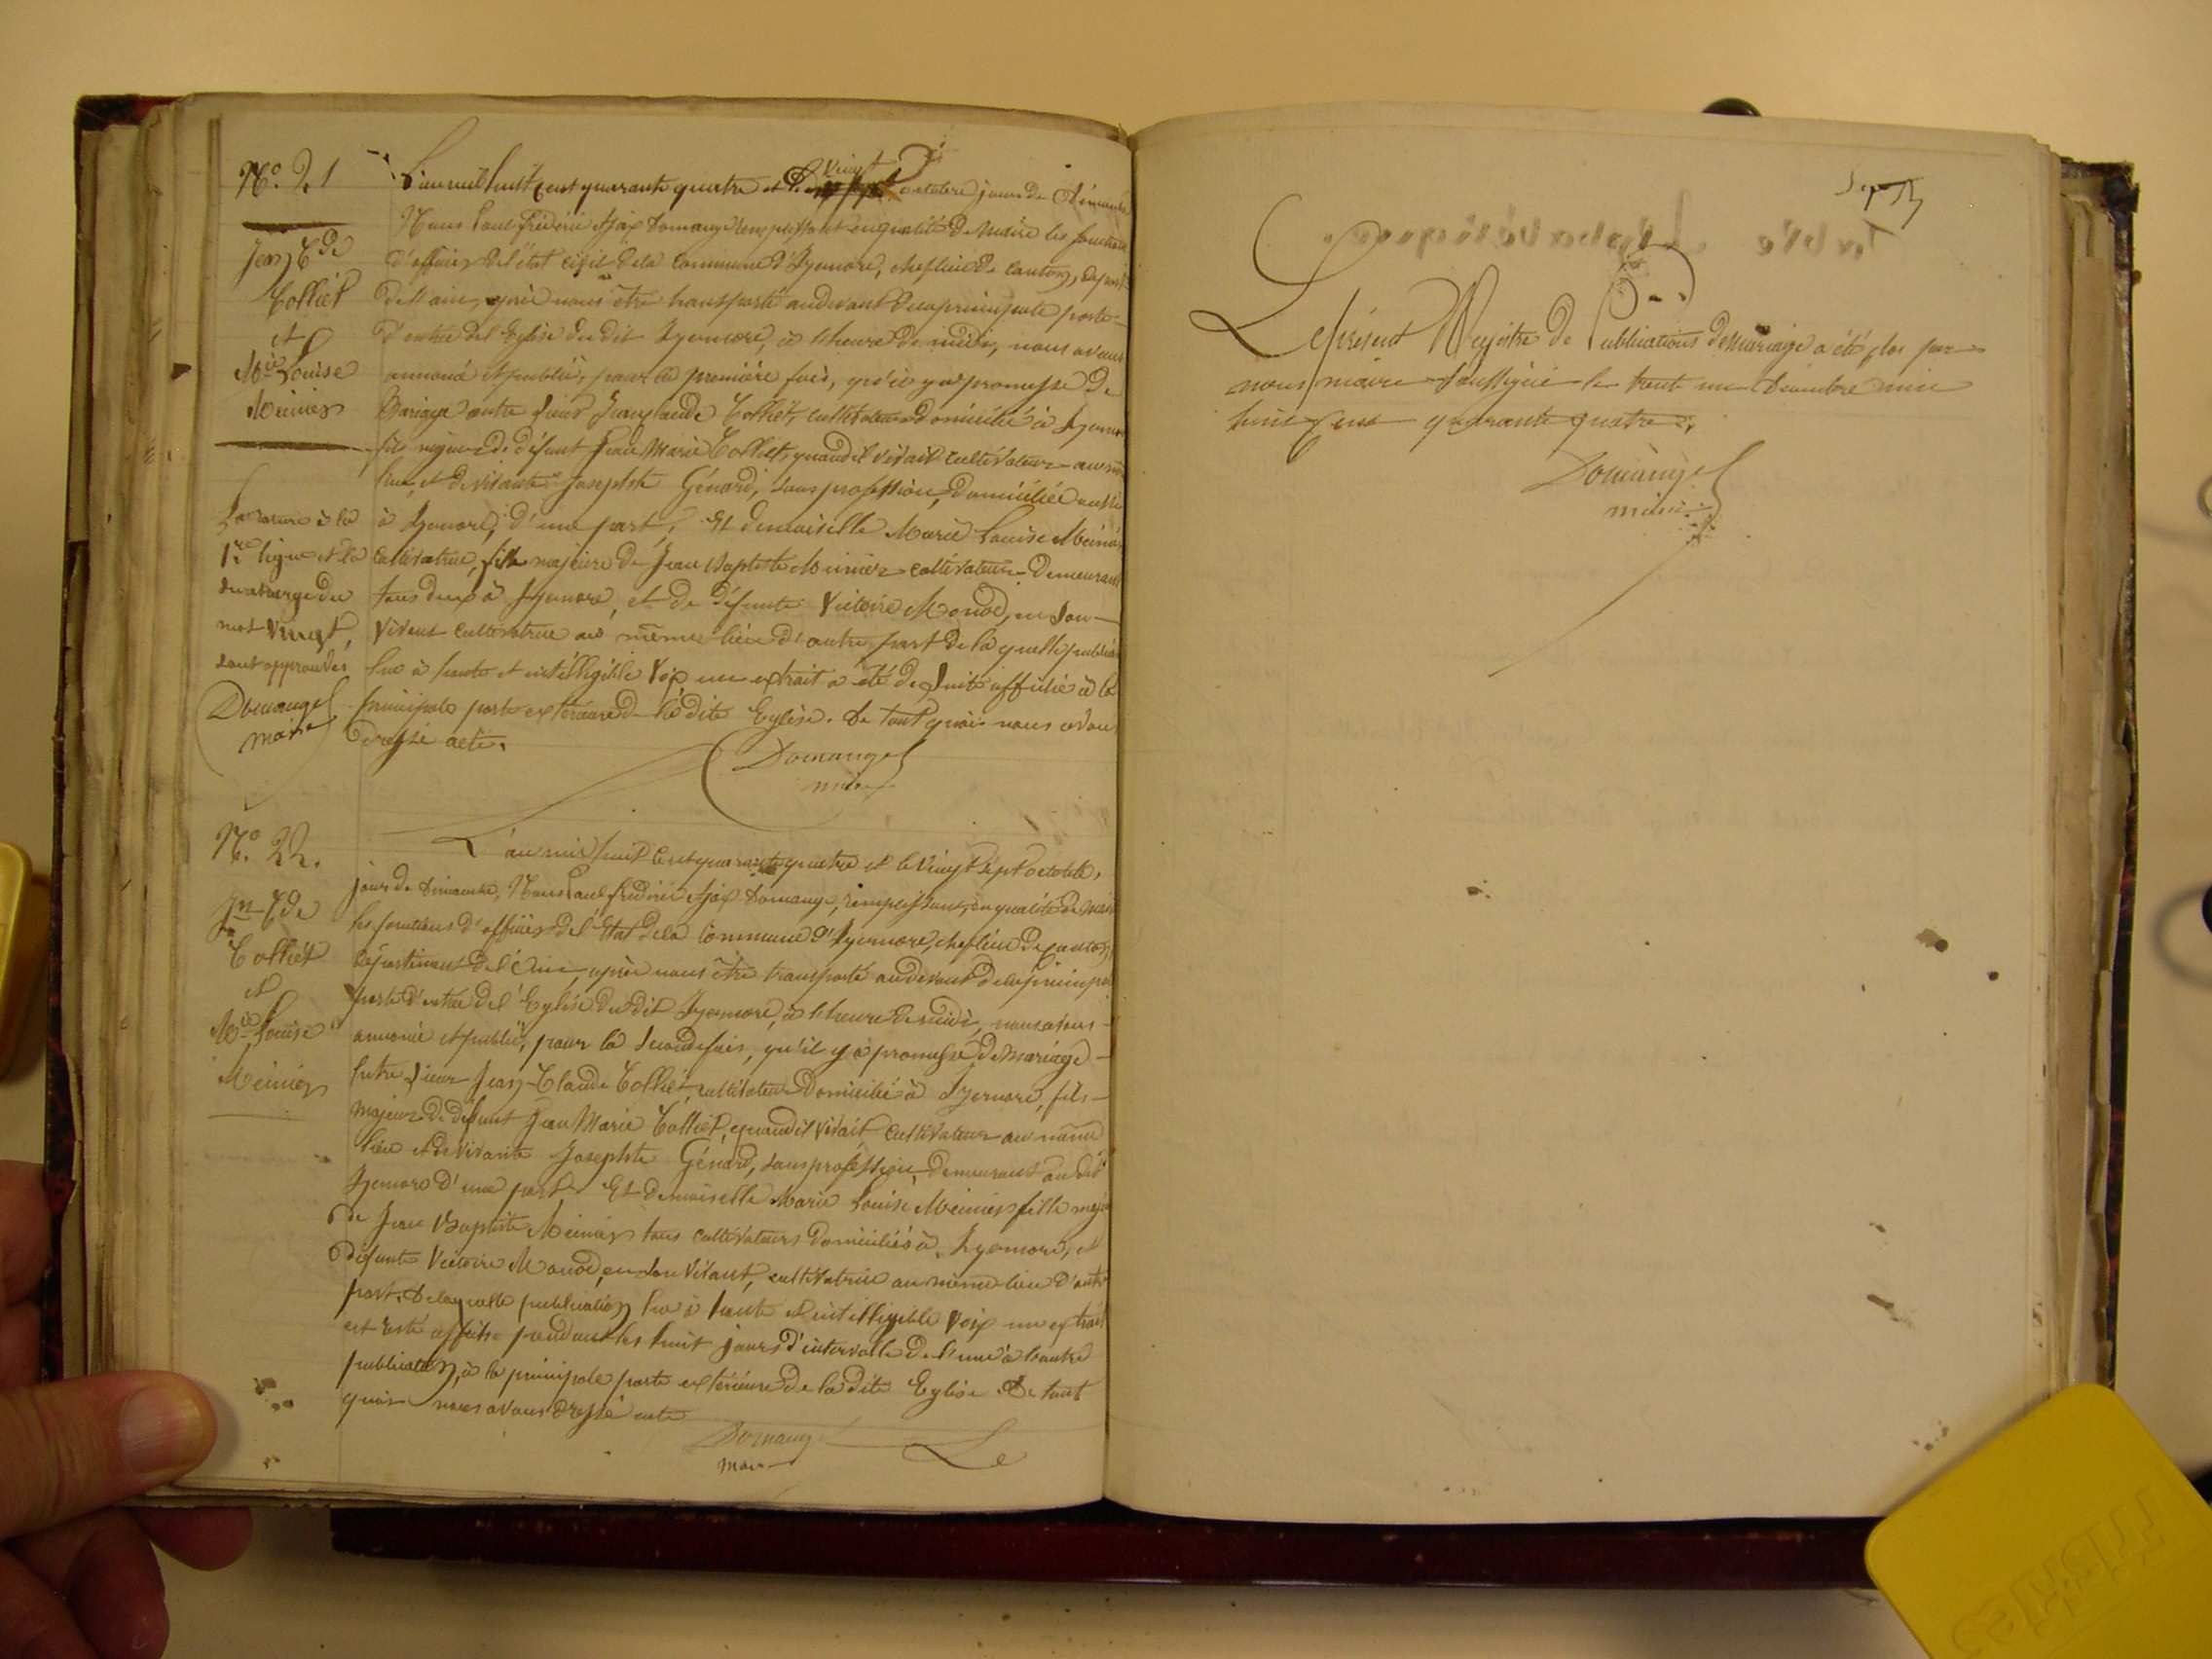 No. 21
Jean Cde
Colliet
et
Mie Louise
Meinier
La rature à la
1re ligne et la
surcharge du
mot vingt,
sont approuvés
Domange
maire
L'an mil huit cent quarante quatre et le vingt octobre jour de Dimanche
Nous Paul Frédéric Ajax Domange remplissant en qualité de Maire les fonctions
d'officier de l'état civil de la Commune d'Izernore, cheflieu de canton, départ.
de l'ain, après nous être transporté au devant de la principale porte
d'entrée de l'Eglise du dit Izernore, à l'heure de midi, nous avons
annoncé et publié, pour la première fois, qu'il y a promesse de
Mariage entre sieur Jean Claude Colliet, cultivateur domicilié à Izernore
fils majeur de défunt Jean Marie Colliet, quand il vivait cultivateur au même
lieu, et de vivante Josephte Génard, sans profession, domiciliée aussi
à Izernore, d'une part, Et demoiselle Marie Louise Meinier
cultivatrice, fille majeure de Jean Baptiste Meinier cultivateur demeurant
tous deux à Izernore, et de défunte Victoire Monod, en son
vivant cultivatrice au même lieu d'autre part de laquelle publication
lue à haute et intelligible voix un extrait a été de suite affiché à la
principale porte extérieure de la dite Eglise. De tout quoi nous avons
dressé acte.
Domange
maire
No. 22.
Jn Cde
Colliet
et
Mie Louise
Meinier
L'an mil huit cent quarante quatre et le vingt sept octobre,
jour de Dimanche, Nous Paul Frédéric Ajax Domange, remplissant, en qualité de Maire
les fonctions d'officier de l'Etat de la Commune d'Izernore, cheflieu de canton,
département de l'Ain, après nous être transporté au devant de la principale
porte d'entrée de l'Eglise du dit Izernore, à l'heure de midi, nous avons
annoncé et publié, pour la seconde fois, qu'il y a promesse de Mariage
Entre sieur Jean-Claude Colliet, cultivateur domicilié à Izernore, fils
majeur de defunt Jean Marie Colliet, quand il vivait cultivateur au même
lieu et de vivante Josephte Génard, sans profession, demeurant au dit
Izernore d'une part. Et demoiselle Marie Louise Meinier fille majeure
de Jean Baptiste Meinier tous cultivateurs domiciliés à Izernore, et
défunte Victoire Monod, en son vivant, cultivatrice au même lieu d'autre
part. De laquelle publication lue à haute et intelligible voix un extrait
est resté affiché pendant les huit jours d'intervalle de l'une à l'autre
publication, à la principale porte extérieure de la dite Eglise. De tout
quoi nous avons dressé acte
Domange
maire
Le
Sept
Le présent Registre de Publications de Mariage a été clos par
nous maire soussigné le trente un Décembre mil
huit cent quarante quatre.
Domange
maire